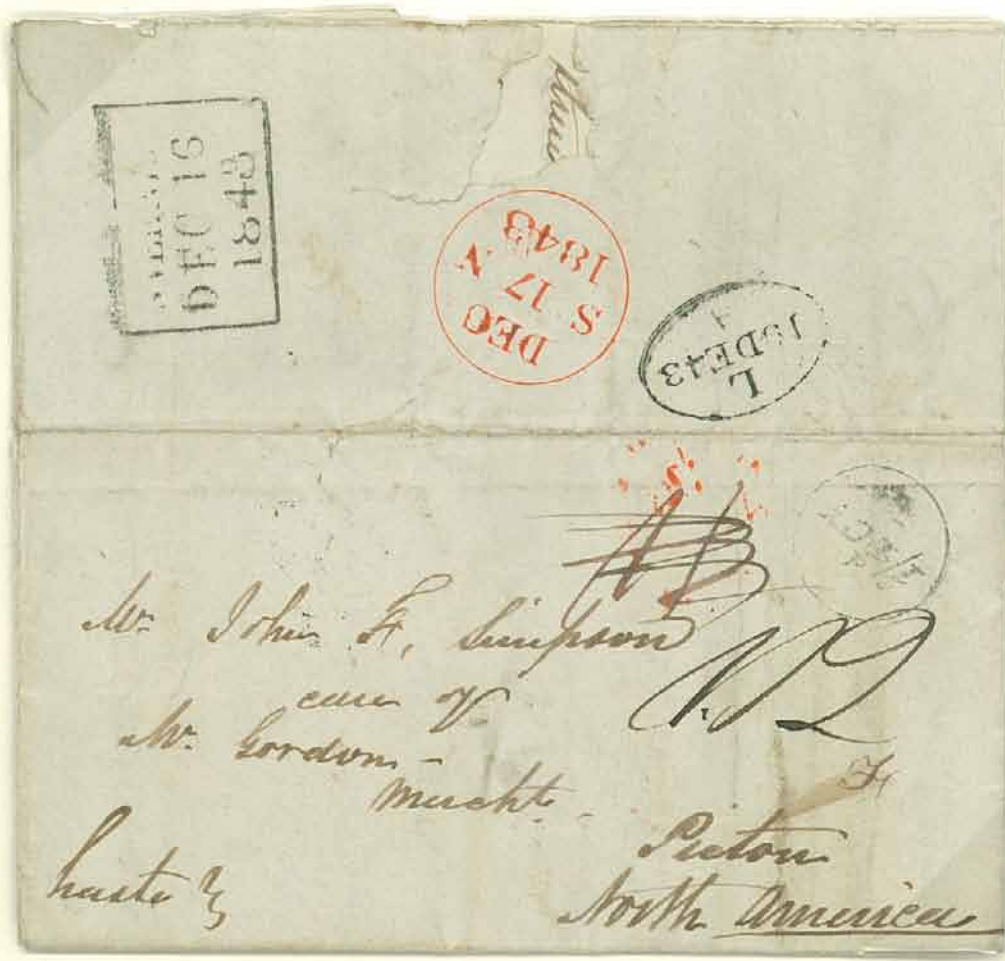 DEC 16
1843
DEC
S 17 N
1843
L
DE43
Mr. John F, Simpson
care of
Mr. Gordon -
Mercht.
1/2
Picton
North America
haste